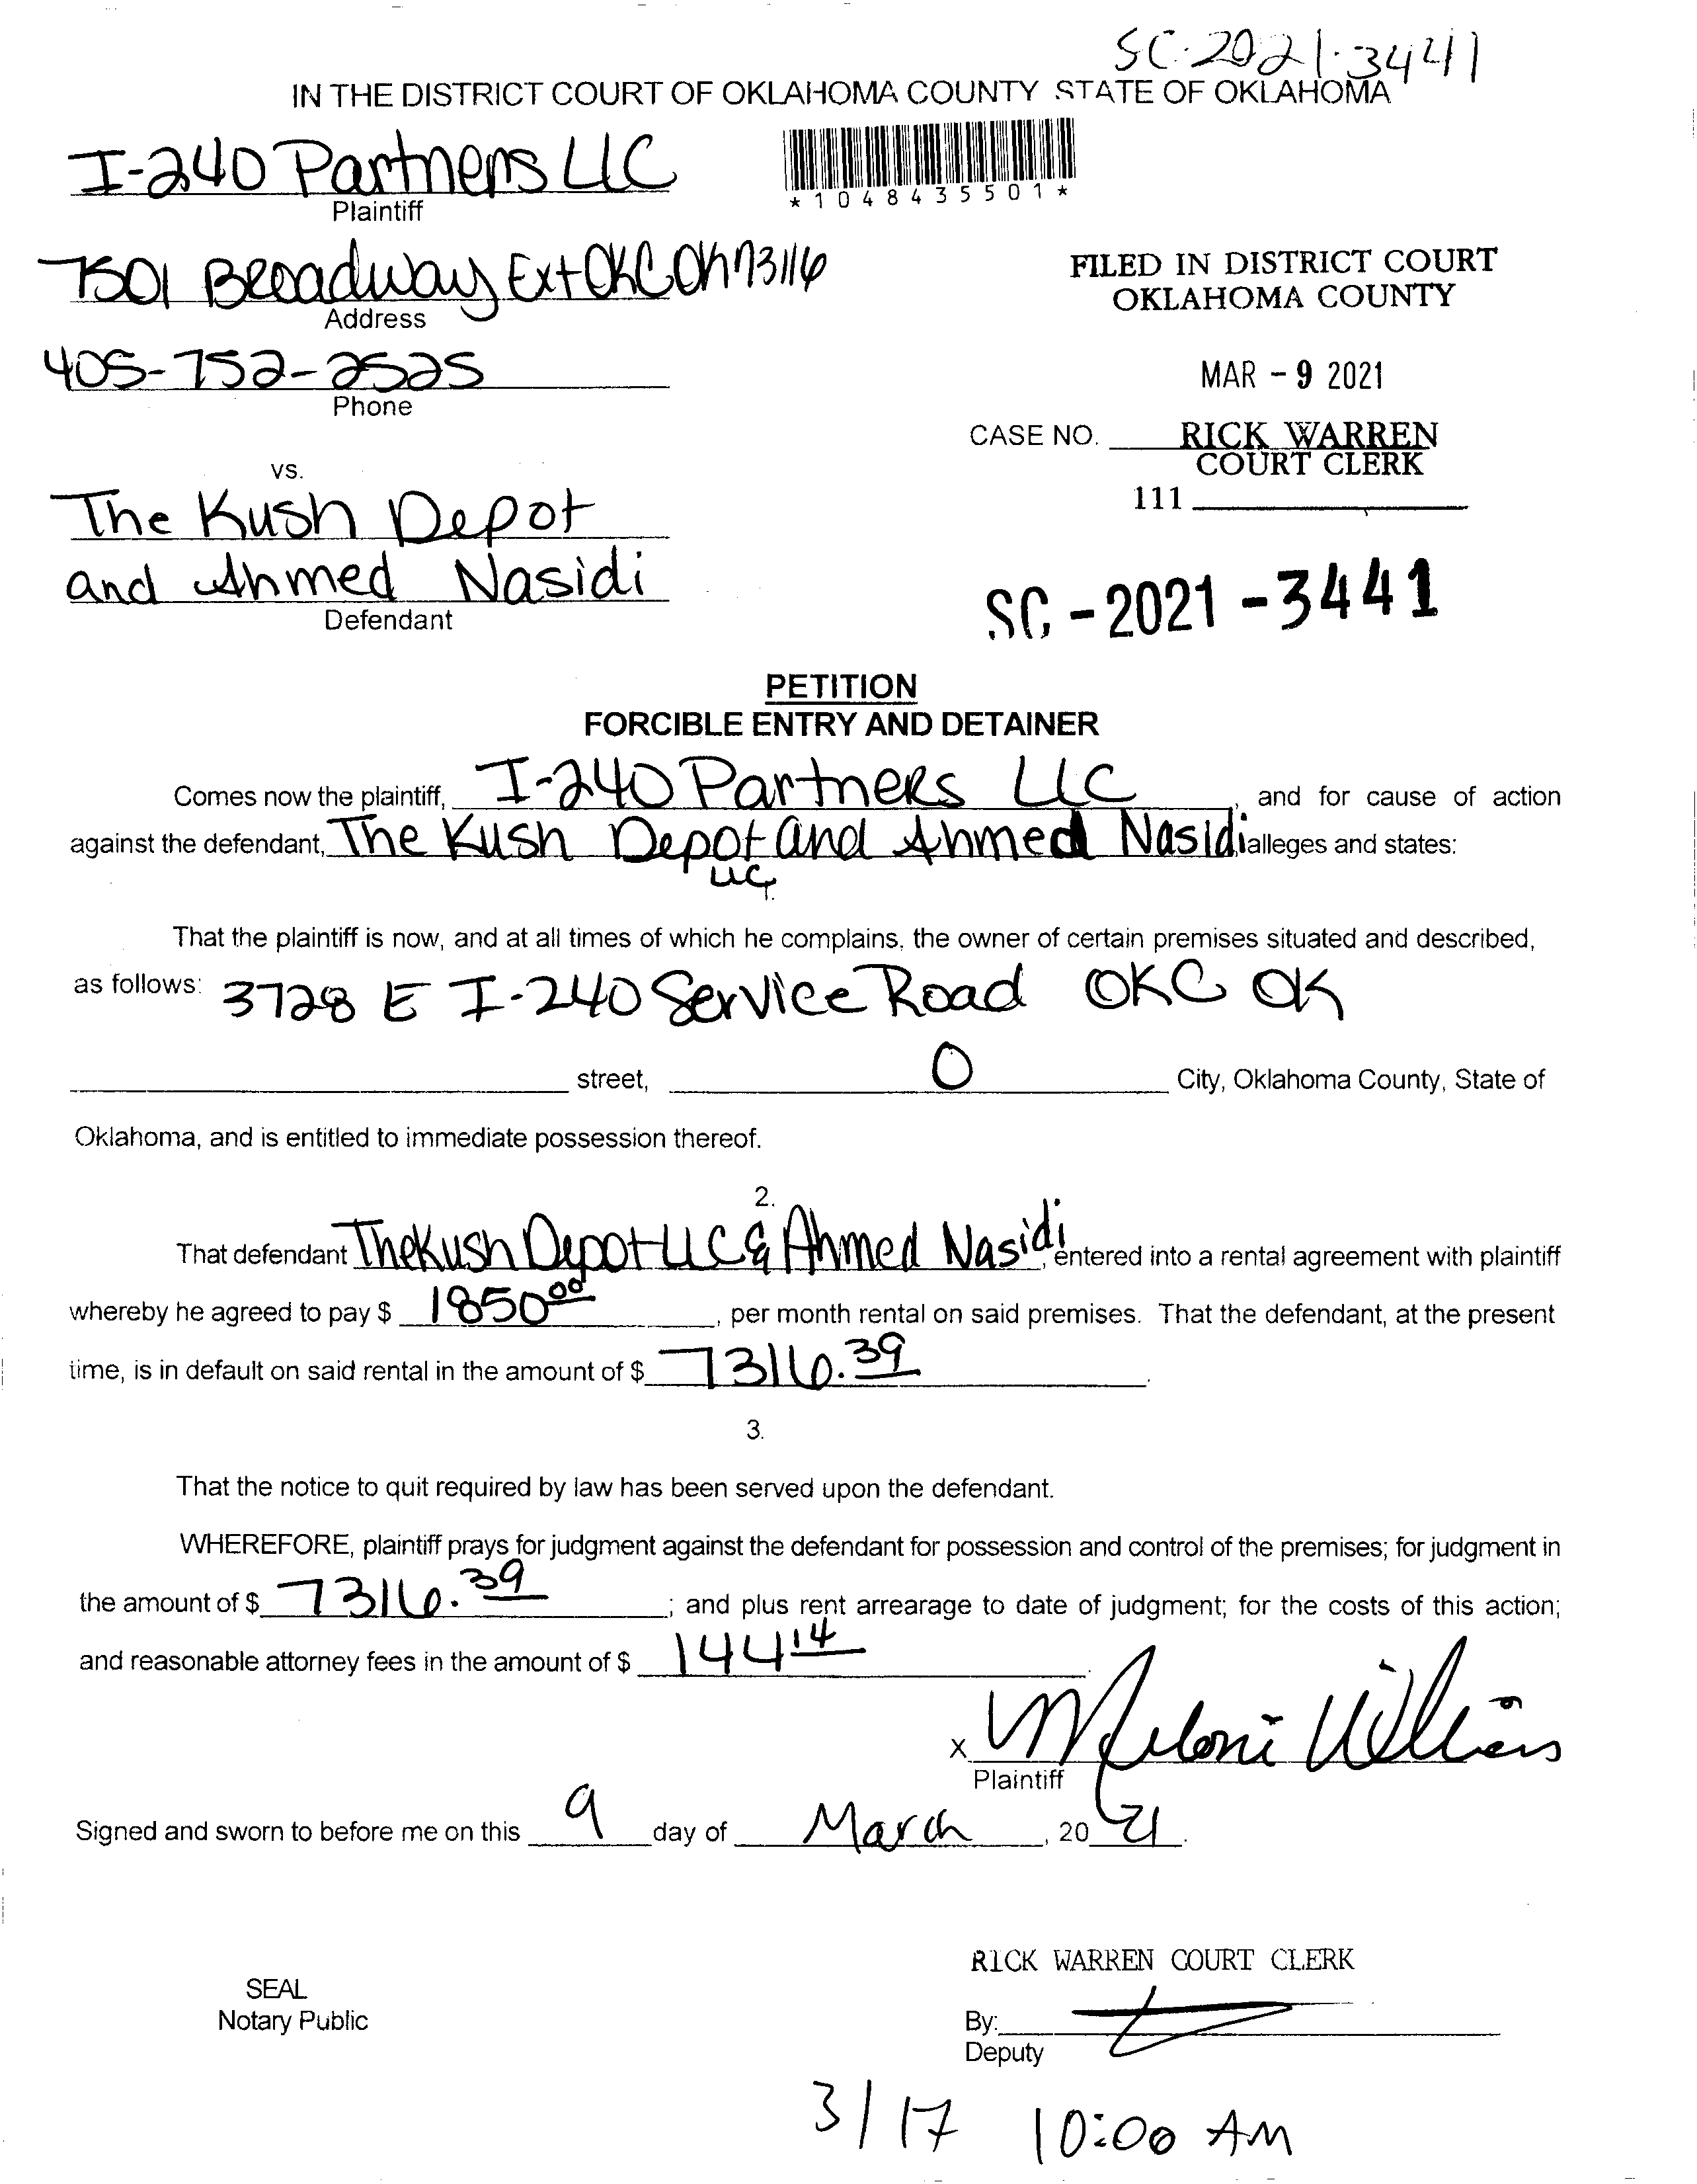 SC-2021-3441
IN THE DISTRICT COURT OF OKLAHOMA COUNTY STATE OF OKLAHOMA
I-240 Partners LLC
Plaintiff
*1048435501*
7501 Broadway Ext OKC Ok 73116
Address
FILED IN DISTRICT COURT
OKLAHOMA COUNTY
405-752-2525
Phone
MAR - 9 2021
CASE NO.
RICK WARREN
COURT CLERK
111
vs.
The Kush Depot
and Ahmed Nasidi
Defendant
SC - 2021 - 3441
PETITION
FORCIBLE ENTRY AND DETAINER
Comes now the plaintiff, I-240 Partners LLC, and for cause of action
against the defendant, The Kush Depot and Ahmed Nasidi, alleges and states:
LLC
1.
That the plaintiff is now, and at all times of which he complains, the owner of certain premises situated and described,
as follows: 3728 E I-240 Service Road OKC OK
street, O City, Oklahoma County, State of
Oklahoma, and is entitled to immediate possession thereof.
2.
That defendant The Kush Depot LLC & Ahmed Nasidi, entered into a rental agreement with plaintiff
whereby he agreed to pay $ 1850.00, per month rental on said premises. That the defendant, at the present
time, is in default on said rental in the amount of $ 7316.39.
3.
That the notice to quit required by law has been served upon the defendant.
WHEREFORE, plaintiff prays for judgment against the defendant for possession and control of the premises; for judgment in
the amount of $ 7316.39; and plus rent arrearage to date of judgment; for the costs of this action;
and reasonable attorney fees in the amount of $ 144 14.
x Meloni Williams
Plaintiff
Signed and sworn to before me on this 9 day of March, 20 21.
RICK WARREN COURT CLERK
SEAL
Notary Public
By:
Deputy
3/17 10:00 AM